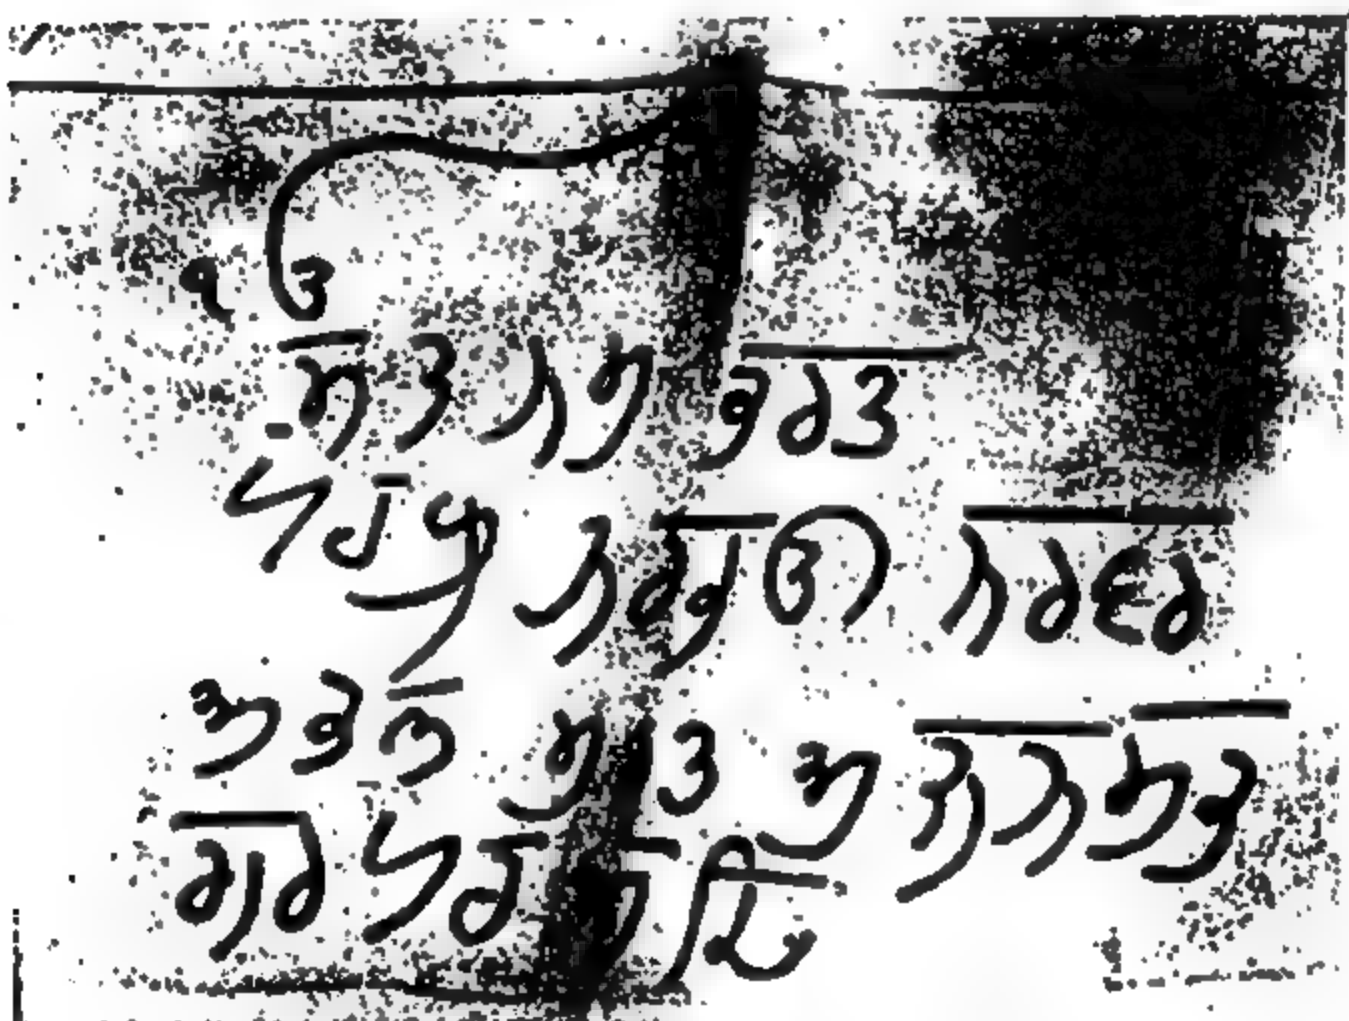 ੴ
ਸਤ ਨਮ ਕਰਤ
ਪਰਖ ਨਰਭੳ ਨਰਵਰ
ਅਕਲ ਮਰਤ ਅਜਨ ਸਭ
ਗਰ ਪਰਸਦਿ